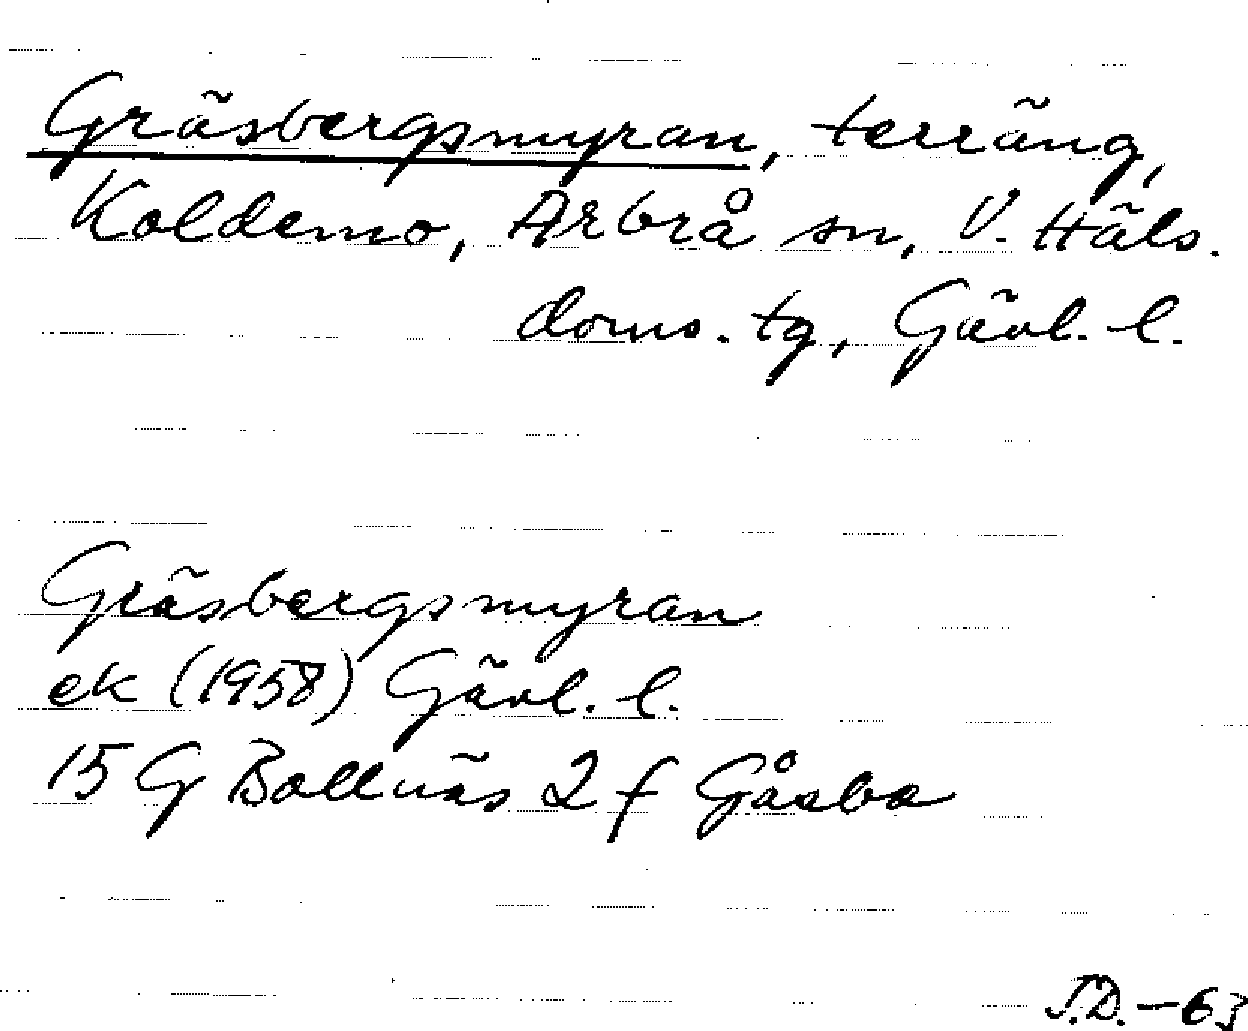 Gräsbergsmyran, terräng,
Koldemo, Arbrå sn, V. Häls.
doms. tg, Gävl. l.
Gräsbergsmyran
ek (1958) Gävl. l.
15 G Bollnäs 2 f Gåsbo
J.D. – 63